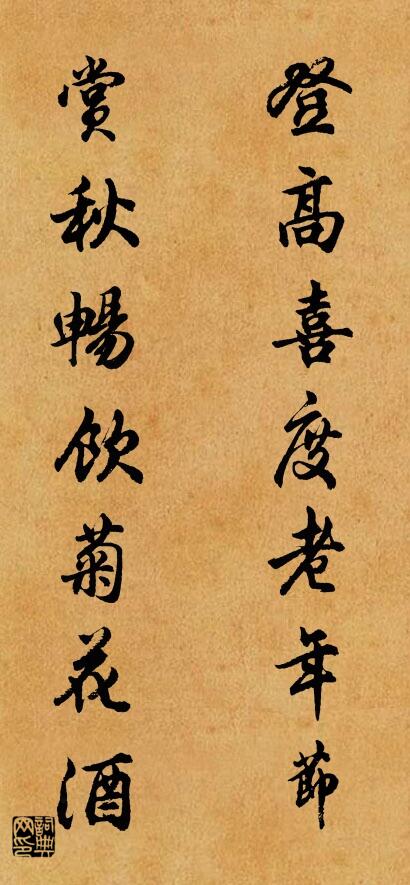 登高喜度老年節
賞秋暢飲菊花酒
詞典网印